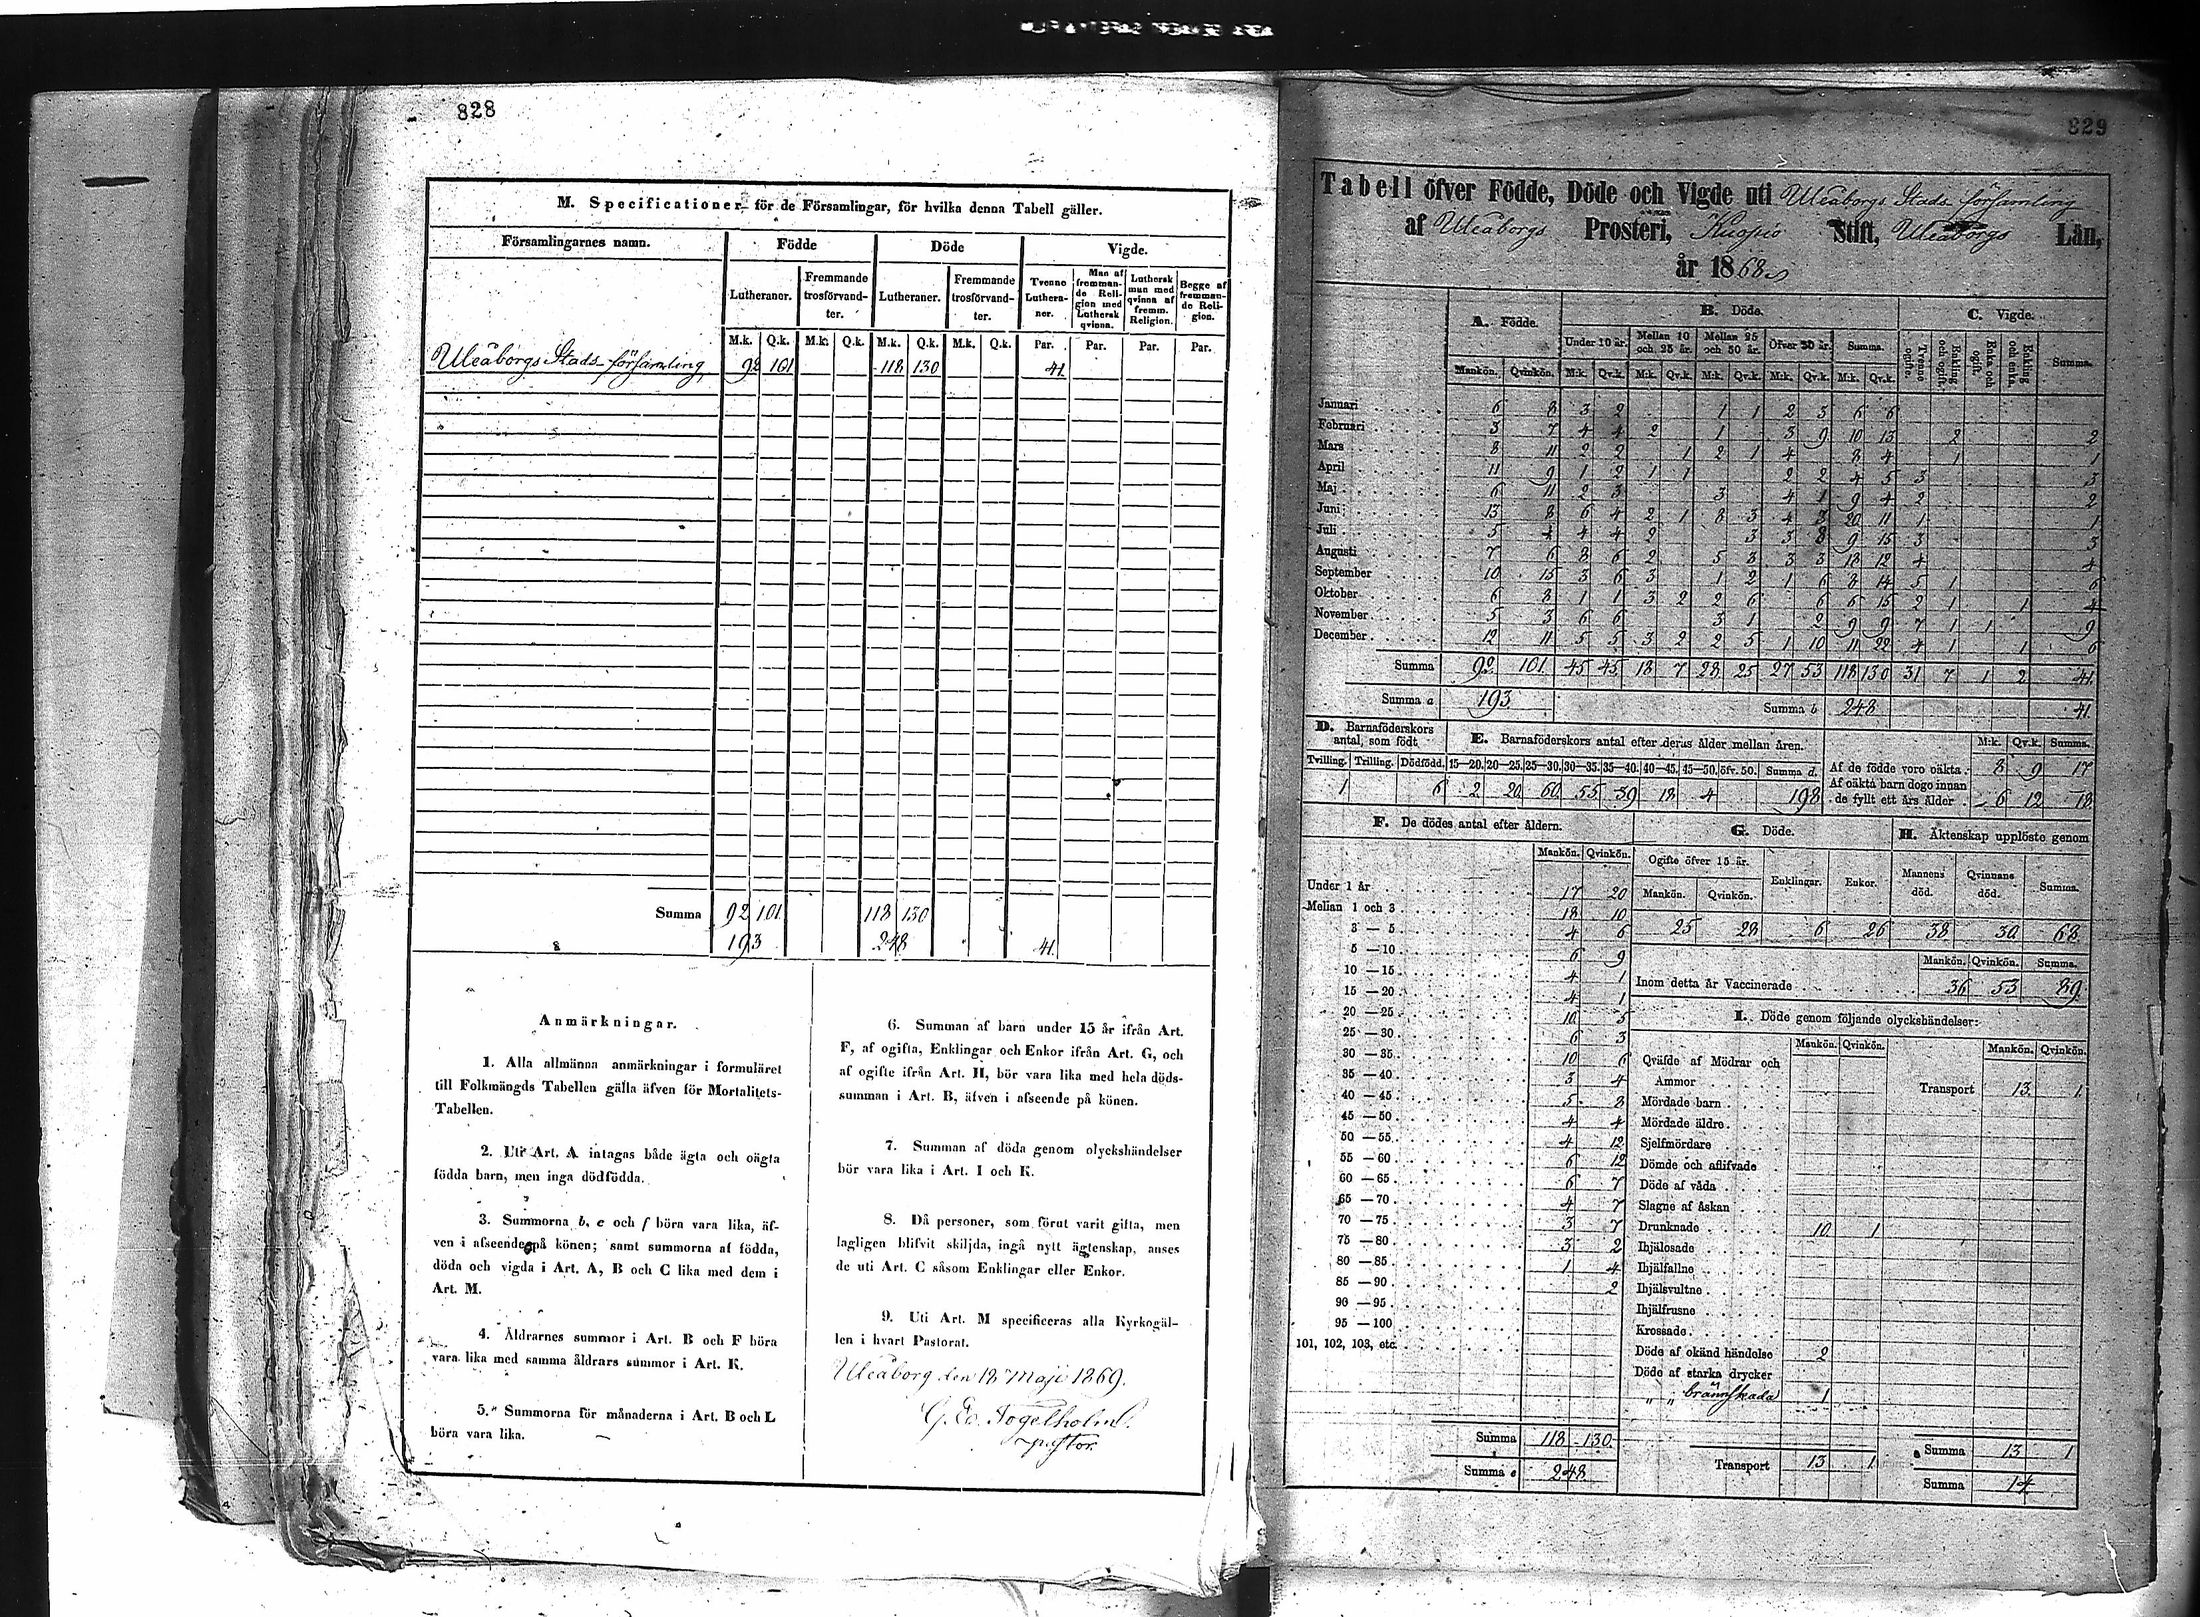 828
M. Specificationer för de Församlingar, för hvilka denna Tabell gäller.
Församlingarnes namn. Födde Döde Vigde.
Lutheraner. Fremmande trosförvandter. Lutheraner. Fremmande trosförvandter. Tvenne Lutheraner. Man af fremmande Religion med Luthersk qvinna. Luthersk man med qvinna af fremm. Religion. Begge af fremmande Religion.
M.k. Q.k. M.k. Q.k. M.k. Q.k. M.k. Q.k. Par. Par. Par. Par.
Uleåborgs Stads församling 92 101 118 130 41
Summa 92 101 118 130
193 248 41
Anmärkningar.
1. Alla allmänna anmärkningar i formuläret
till Folkmängds Tabellen gälla äfven för Mortalitets-
Tabellen.
2. Uti Art. A intagas både ägta och oägta
födda barn, men inga dödfödda.
3. Summorna b, e och f böra vara lika, äf-
ven i afseende på könen; samt summorna af födda,
döda och vigda i Art. A, B och C lika med dem i
Art. M.
4. Åldrarnes summor i Art. B och F böra
vara lika med samma åldrars summor i Art. K.
5. Summorna för månaderna i Art. B och L
böra vara lika.
6. Summan af barn under 15 år ifrån Art.
F, af ogifta, Enklingar och Enkor ifrån Art. G, och
af ogifte ifrån Art. H, bör vara lika med hela döds-
summan i Art. B, äfven i afseende på könen.
7. Summan af döda genom olyckshändelser
bör vara lika i Art. I och K.
8. Då personer, som förut varit gifta, men
lagligen blifvit skiljda, ingå nytt ägtenskap, anses
de uti Art. C såsom Enklingar eller Enkor.
9. Uti Art. M specificeras alla Kyrkogäl-
len i hvart Pastorat.
Uleåborg den 18 Maji 1869.
pastor.
829
Tabell öfver Födde, Döde och Vigde uti Uleåborgs Stads församling
af Uleåborgs Prosteri, Kuopio Stift, Uleåborgs Län,
år 1868
A. Födde. B. Döde. C. Vigde.
Under 10 år. Mellan 10 och 25 år. Mellan 25 och 50 år. Öfver 50 år. Summa. Tvenne ogifte. Enkling och ogift. Enka och ogift. Enkling och enka. Summa.
Mankön. Qvinkön. M.k. Qv.k. M.k. Qv.k. M.k. Qv.k. M.k. Qv.k. M.k. Qv.k.
Januari 6 8 3 2 1 1 2 3 6 6
Februari 3 7 4 4 2 1 3 9 10 13 2 2
Mars 8 11 2 2 1 2 1 4 8 4 1 1
April 11 9 1 2 1 1 2 2 4 5 3 3
Maj 6 11 2 3 3 4 1 9 4 2 2
Juni 13 8 6 4 2 1 8 3 4 3 20 11 1 1
Juli 5 4 4 4 2 3 3 8 9 15 3 3
Augusti 7 6 8 6 2 5 3 3 3 18 12 4 4
September 10 15 3 6 3 1 2 1 6 8 14 5 1 6
Oktober 6 8 1 1 3 2 2 6 6 6 15 2 1 1 4
November 5 3 6 6 3 1 2 9 9 7 1 1 9
December 12 11 5 5 3 2 2 5 1 10 11 22 4 1 1 6
Summa 92 101 45 45 18 7 28 25 27 53 118 130 31 7 1 2 41
Summa a 193 Summa b 248 41
D. Barnaföderskors antal, som födt E. Barnaföderskors antal efter deras ålder mellan åren. M.k. Qv.k. Summa.
Tvilling. Trilling. Dödfödd. 15—20. 20—25. 25—30. 30—35. 35—40. 40—45. 45—50. öfv. 50. Summa d.
1 6 2 20 60 55 39 18 4 198
Af de födde voro oäkta 8 9 17
Af oäkta barn dogo innan de fyllt ett års ålder 6 12 18
F. De dödes antal efter åldern.
Mankön. Qvinkön.
Under 1 år 17 20
Mellan 1 och 3 18 10
3 — 5 4 6
5 — 10 6 9
10 — 15 4 1
15 — 20 4 1
20 — 25 10 5
25 — 30 6 3
30 — 35 10 6
35 — 40 3 4
40 — 45 5 8
45 — 50 4 4
50 — 55 4 12
55 — 60 6 12
60 — 65 6 7
65 — 70 4 7
70 — 75 3 7
75 — 80 3 2
80 — 85 1 4
85 — 90 2
90 — 95
95 — 100
101, 102, 103, etc.
Summa 118 130
Summa e 248
G. Döde.
Ogifte öfver 15 år. Enklingar. Enkor.
Mankön. Qvinkön.
25 28 6 26
H. Äktenskap upplöste genom
Mannens död. Qvinnans död. Summa.
38 30 68
Mankön. Qvinkön. Summa.
Inom detta år Vaccinerade 36 53 89
I. Döde genom följande olyckshändelser:
Mankön. Qvinkön. Mankön. Qvinkön.
Qväfde af Mödrar och Ammor Transport 13 1
Mördade barn
Mördade äldre
Sjelfmördare
Dömde och aflifvade
Döde af våda
Slagne af Åskan
Drunknade 10 1
Ihjälosade
Ihjälfallne
Ihjälsvultne
Ihjälfrusne
Krossade
Döde af okänd händelse 2
Döde af starka drycker
„ „ brännskada 1
Transport 13 1 Summa 13 1
Summa 14